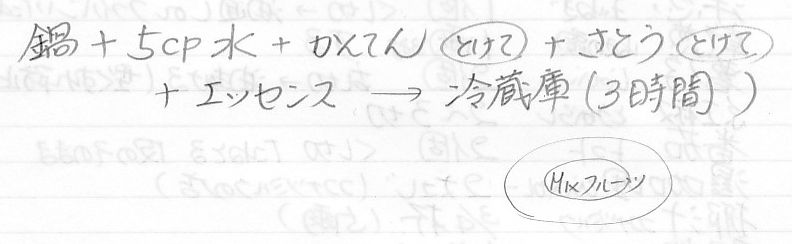 鍋 + 5cp 水 + かんてん (とけて) + さとう (とけて)
+ エッセンス → 冷蔵庫 (3時間)
Mixフルーツ